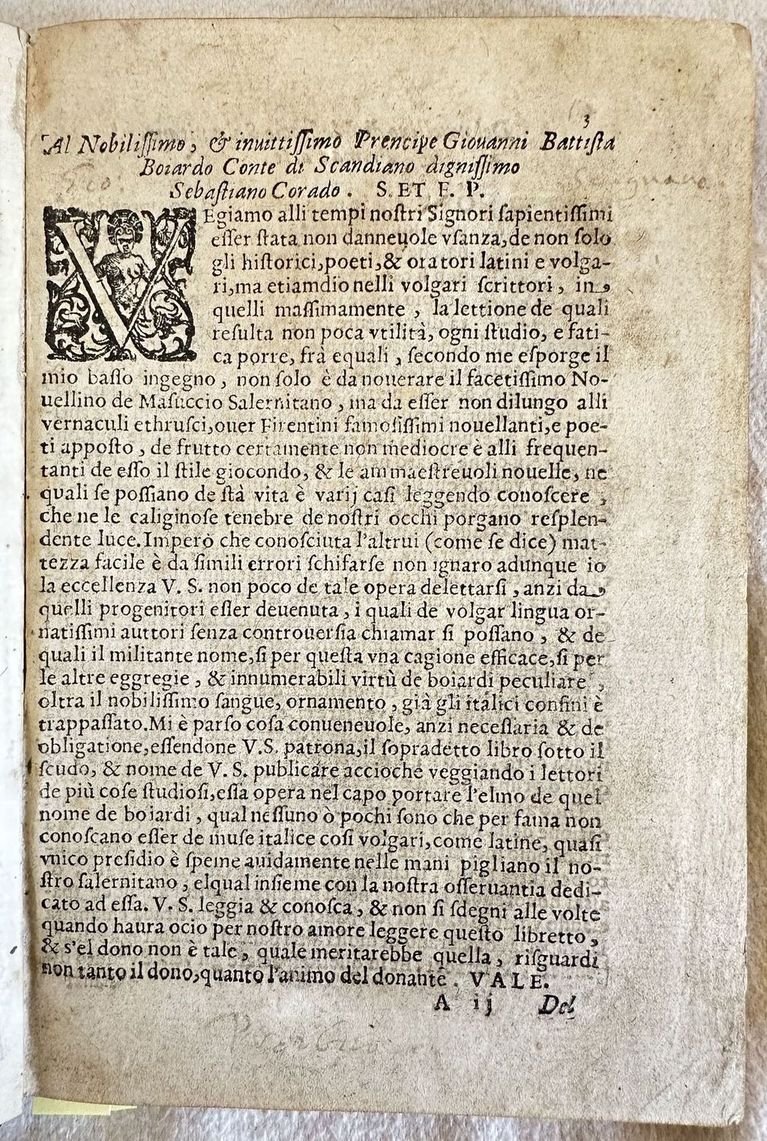 3
Al Nobilissimo, & inuittissimo Prencipe Giouanni Battista
Boiardo Conte di Scandiano dignissimo
Sebastiano Corado. S. ET F. P.
VEgiamo alli tempi nostri Signori sapientissimi
esser stata non danneuole vsanza, de non solo
gli historici, poeti, & oratori latini e volga-
ri, ma etiamdio nelli volgari scrittori, in
quelli massimamente, la lettione de quali
resulta non poca vtilità, ogni studio, e fati-
ca porre, frà equali, secondo me esporge il
mio basso ingegno, non solo è da nouerare il facetissimo No-
uellino de Masuccio Salernitano, ma da esser non dilungo alli
vernaculi ethrusci, ouer Firentini famosissimi nouellanti, e poe-
ti apposto, de frutto certamente non mediocre è alli frequen-
tanti de esso il stile giocondo, & le ammaestreuoli nouelle, ne
quali se possiano de stà vita è varij casi leggendo conoscere,
che ne le caliginose tenebre de nostri occhi porgano resplen-
dente luce. Imperò che conosciuta l'altrui (come se dice) mat-
tezza facile è da simili errori schifarse non ignaro adunque io
la eccellenza V. S. non poco de tale opera delettarsi, anzi da
quelli progenitori esser deuenuta, i quali de volgar lingua or-
natissimi auttori senza controuersia chiamar si possano, & de
quali il militante nome, si per questa vna cagione efficace, si per
le altre eggregie, & innumerabili virtù de boiardi peculiare,
oltra il nobilissimo sangue, ornamento, già gli italici confini è
trappassato. Mi è parso cosa conueneuole, anzi necessaria & de
obligatione, essendone V.S. patrona, il sopradetto libro sotto il
scudo, & nome de V. S. publicare accioche veggiando i lettori
de più cose studiosi, essa opera nel capo portare l'elmo de quel
nome de boiardi, qual nessuno ò pochi sono che per fama non
conoscano esser de muse italice così volgari, come latine, quasi
vnico presidio è speme auidamente nelle mani pigliano il no-
stro salernitano, elqual insieme con la nostra osseruantia dedi-
cato ad essa. V. S. leggia & conosca, & non si sdegni alle volte
quando haura ocio per nostro amore leggere questo libretto,
& s'el dono non è tale, quale meritarebbe quella, risguardi
non tanto il dono, quanto l'animo del donante. VALE.
A ij Del